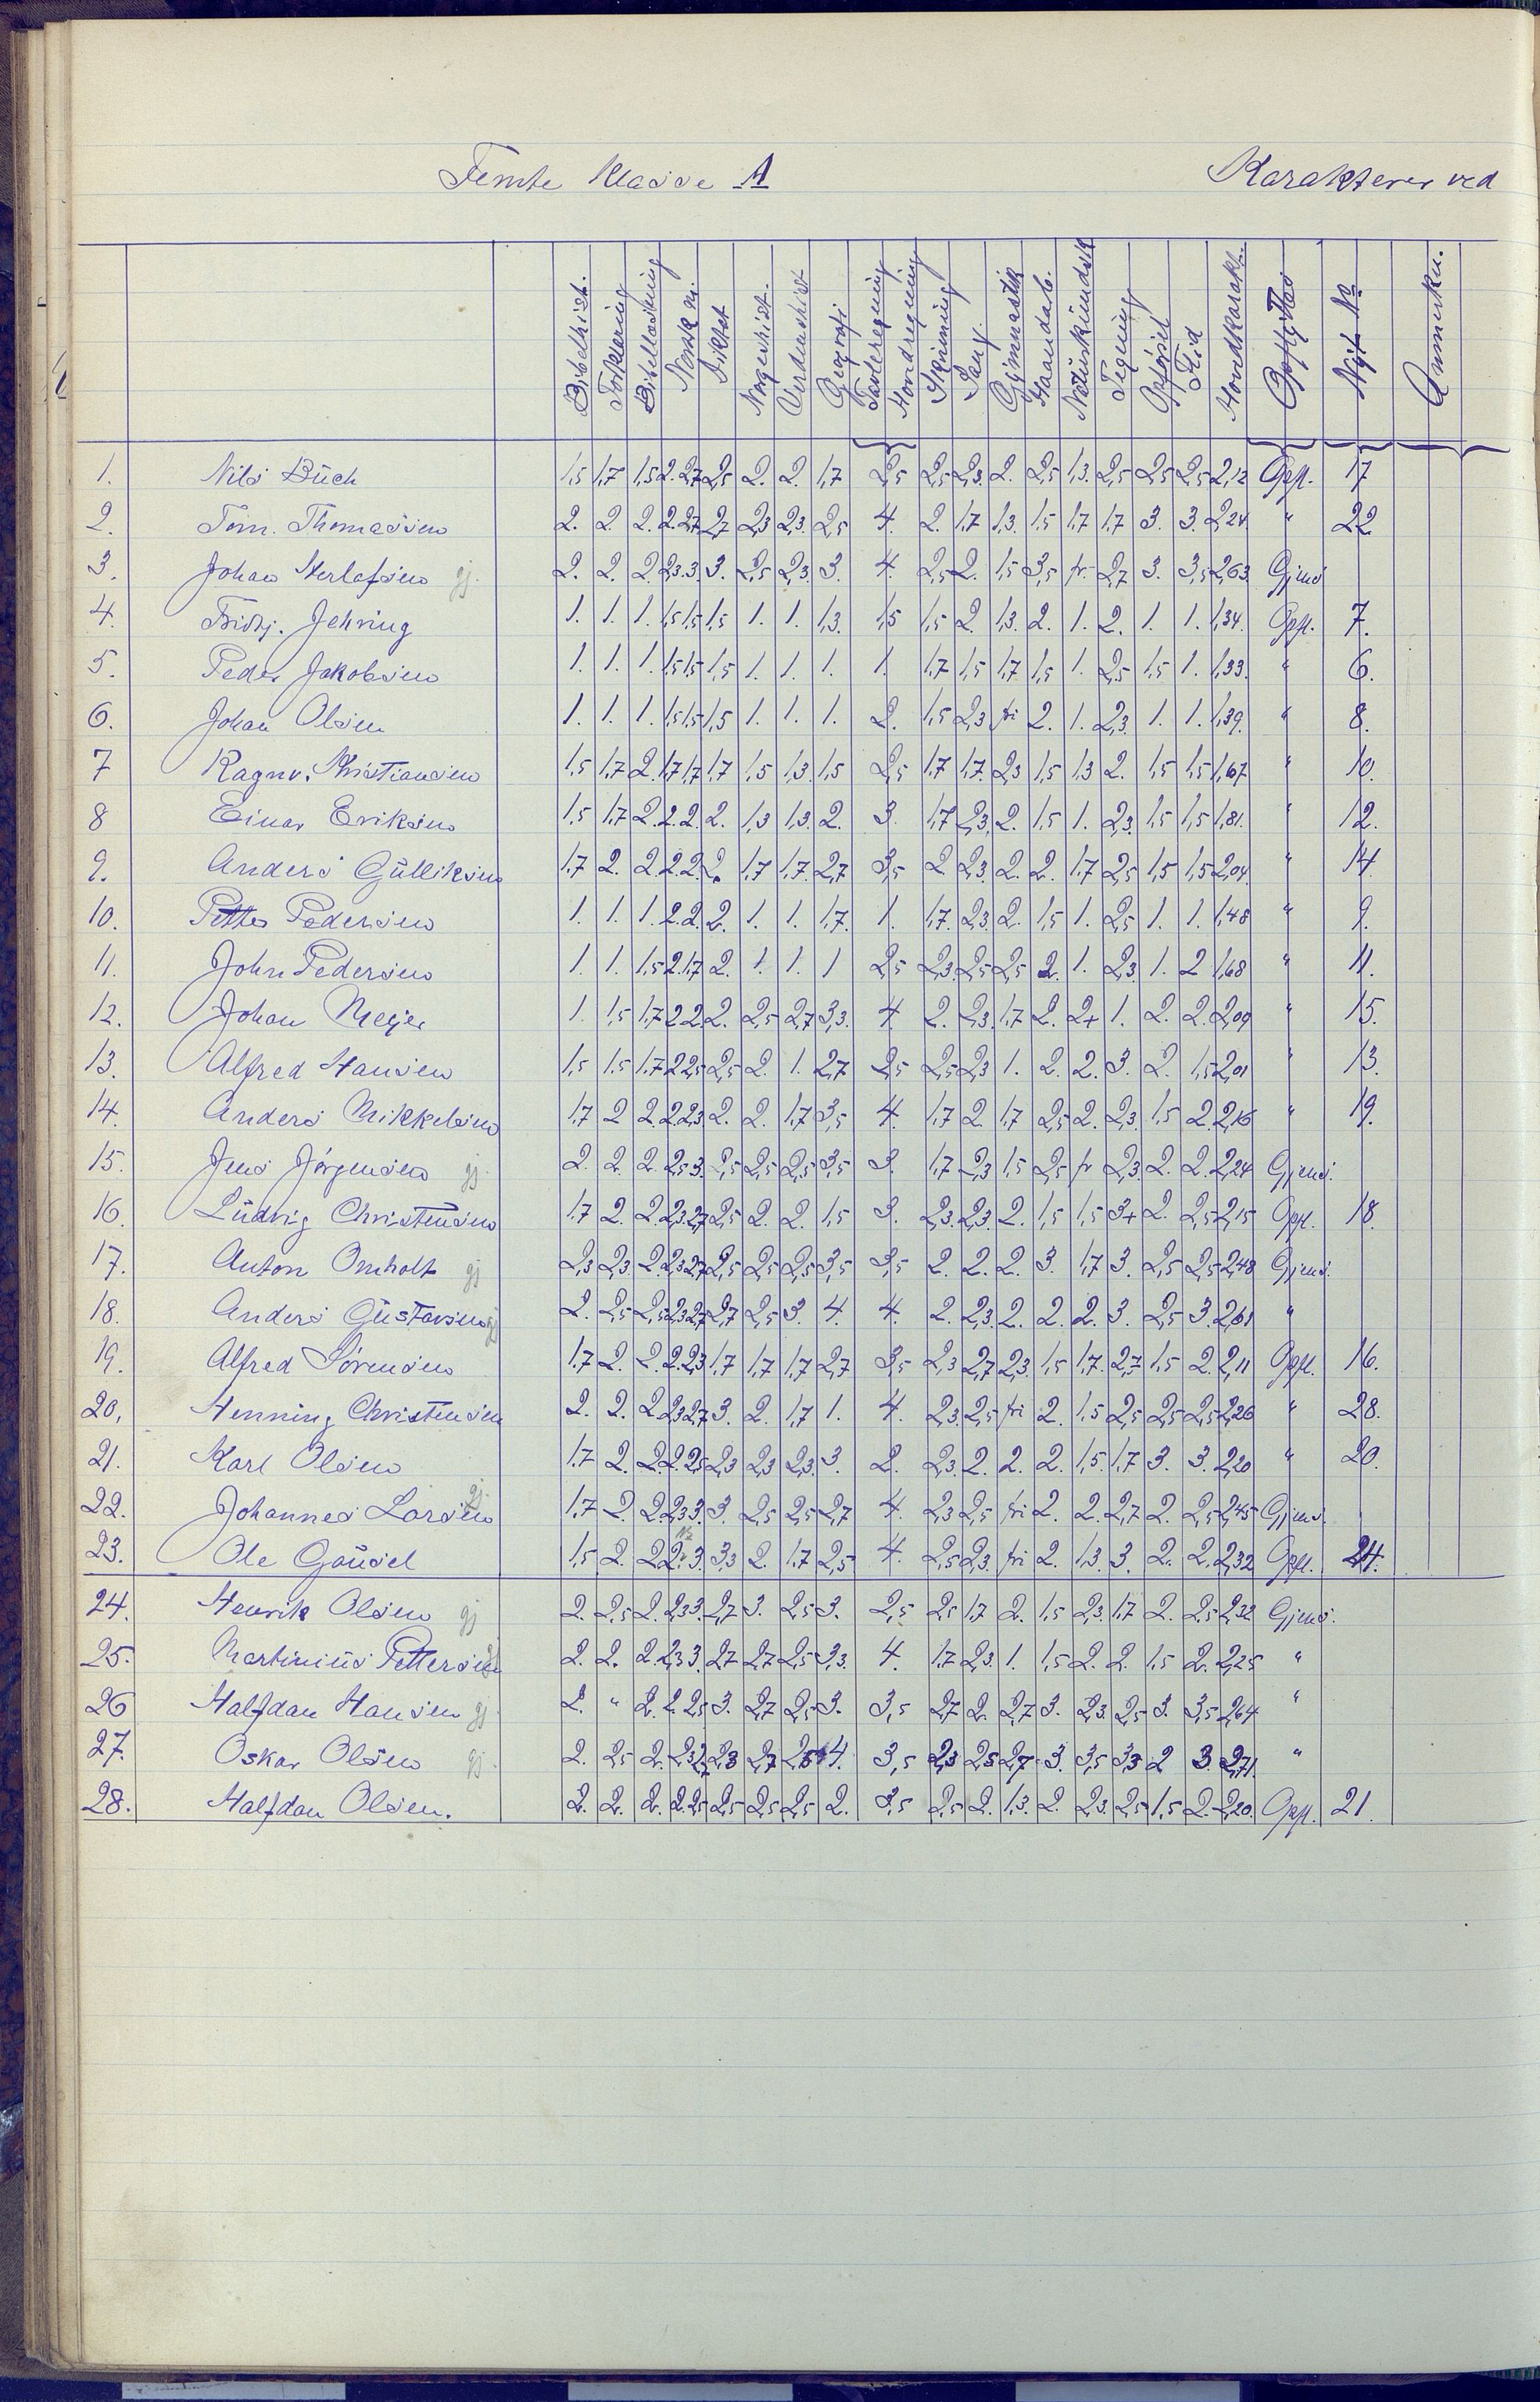 Femte Klasse A Karakterer ved
Bibelhist. Forklaring Bibellæsning Norsk m. Diktat Norgeshist. Verdenshist Geografi Tavleregning Hovedregning Skrivning Sang. Gymnastik Haandarb. Naturkundsk Tegning Opførsel Flid Hovedkarakt. Nyt No Anmerkn.
1. Nils Buch 1,5 1,7 1,5 2. 2,7 2,5 2. 2. 1,7 2,5 2,5 2,3. 2. 2,5 1,3. 2,5 2,5 2,5 2,12 Opfl. 17
2. Tom. Thomassen 2. 2. 2. 2. 2,7 2,7 2,3 2,3. 2,5 4. 2. 1,7 1,3. 1,5 1,7 1,7 3. 3. 2,24. " 22
3. Johan Herlofsen gj. 2. 2. 2. 2,3. 3. 3. 2,5 2,3. 3. 4. 2,5 2. 1,5 3,5 fr. 2,7 3. 3,5 2,63. Gjens
4. Fridtj. Jehring 1. 1. 1. 1,5 1,5 1,5 1. 1. 1,3. 1,5 1,5 2. 1,3. 2. 1. 2. 1. 1. 1,34. Opfl. 7.
5. Peder Jakobsen 1. 1. 1. 1,5 1,5 1,5 1. 1. 1. 1. 1,7 1,5 1,7 1,5 1. 2,5 1,5 1. 1,33. " 6.
6. Johan Olsen 1. 1. 1. 1,5 1,5 1,5 1. 1. 1. 2. 1,5 2,3 fri 2. 1. 2,3. 1. 1. 1,39. " 8.
7 Ragnv. Kristiansen 1,5 1,7 2. 1,7 1,7 1,7 1,5 1,3. 1,5 2,5 1,7 1,7. 2,3 1,5 1,3 2. 1,5 1,5 1,67 " 10.
8 Einar Eriksen 1,5 1,7 2. 2. 2. 2. 1,3 1,3. 2. 3. 1,7 2,3. 2. 1,5 1. 2,3. 1,5 1,5 1,81. " 12.
9. Anders Gulliksen 1,7 2. 2. 2. 2. 2. 1,7 1,7. 2,7 3,5 2. 2,3. 2. 2. 1,7 2,5 1,5 1,5 2,04. " 14.
10. Petter Pedersen 1. 1. 1. 2. 2. 2. 1. 1. 1,7. 1. 1,7. 2,3. 2. 1,5 1. 2,5 1. 1. 1,48 " 9.
11. John Pedersen 1. 1. 1,5 2. 1,7 2. 1. 1. 1 2,5 2,3. 2,5 2,5 2. 1. 2,3. 1. 2 1,68 " 11.
12. Johan Meyer 1. 1,5 1,7 2 2. 2. 2,5 2,7 3,3. 4. 2. 2,3. 1,7 2. 2+ 1. 2. 2. 2,09 " 15.
13. Alfred Hansen 1,5 1,5 1,7 2 2,5 2,5 2. 1. 2,7 2,5 2,5 2,3 1. 2. 2. 3. 2. 1,5 2,01 " 13.
14. Anders Mikkelsen 1,7 2 2. 2. 2,3. 2. 2. 1,7 3,5 4. 1,7 2. 1,7 2,5 2. 2,3 1,5 2. 2,16 " 19.
15. Jens Jörgensen gj. 2. 2. 2. 2,5 3. 2,5 2,5 2,5 3,5 3. 1,7 2,3 1,5 2,5 fr 2,3. 2. 2. 2,24 Gjens.
16. Ludvig Christensen 1,7 2. 2. 2,3. 2,7 2,5 2. 2. 1,5 3. 2,3. 2,3. 2. 1,5 1,5 3+ 2. 2,5 2,15 Opfl. 18.
17. Anton Omholt gj 2,3 2,3. 2. 2,3 2,7 2,5 2,5 2,5 3,5 3,5 2. 2. 2. 3. 1,7 3. 2,5 2,5 2,48 Gjens.
18. Anders Gustavsen gj 2. 2,5 2,5 2,3 2,7 2,7 2,5 3. 4. 4. 2. 2,3. 2. 2. 2. 3. 2,5 3. 2,61 "
19. Alfred Sörensen 1,7 2. 2. 2. 2,3 1,7 1,7 1,7 2,7 3,5 2,3 2,7 2,3. 1,5 1,7. 2,7 1,5 2. 2,11 Opfl. 16.
20. Henning Christensen 2. 2. 2. 2,3 2,7 3. 2. 1,7 1. 4. 2,3. 2,5 fri 2. 1,5 2,5 2,5 2,5 2,26 " 28.
21. Karl Olsen 1,7 2. 2. 2. 2,5 2,3 2,3 2,3. 3. 2. 2,3. 2. 2. 2. 1,5. 1,7 3. 3. 2,20 " 20.
22. Johannes Larsen gj. 1,7 2. 2. 2,3 3. 3. 2,5 2,5 2,7 4. 2,3 2,5 fri 2. 2. 2,7 2. 2,5 2,45 Gjens.
23. Ole Gausel 1,5 2. 2. 2. 3. 3,3 2. 1,7 2,5 4. 2,5 2,3. fri 2. 1,3 3. 2. 2. 2,32 Opfl. 24.
24. Henrik Olsen gj 2. 2,5 2. 2,3 3. 2,7 3. 2,5 3. 2,5 2,5 1,7 2. 1,5 2,3. 1,7 2. 2,5 2,32 Gjens.
25. Martinius Pettersen gj 2. 2. 2. 2,3 3. 2,7 2,7 2,5 3,3. 4. 1,7 2,3. 1. 1,5 2. 2. 1,5 2. 2,25 "
26 Halfdan Hansen gj 2. " 2. 2. 2,5 3. 2,7 2,5 3. 3,5 2,7 2. 2,7 3. 2,3. 2,5 3. 3,5 2,64 "
27. Oskar Olsen gj. 2. 2,5 2. 2,3 2,7 2,3 2,7 4. 3,5 2,3 2,3 2,7 3. 3,5 3,3 2 3. 2,71. "
28. Halfdan Olsen. 2. 2. 2. 2. 2,5 2,5 2,5 2,5 2. 3,5 2,5 2. 1,3. 2. 2,3. 2,5 1,5 2. 2,20. Opfl. 21.